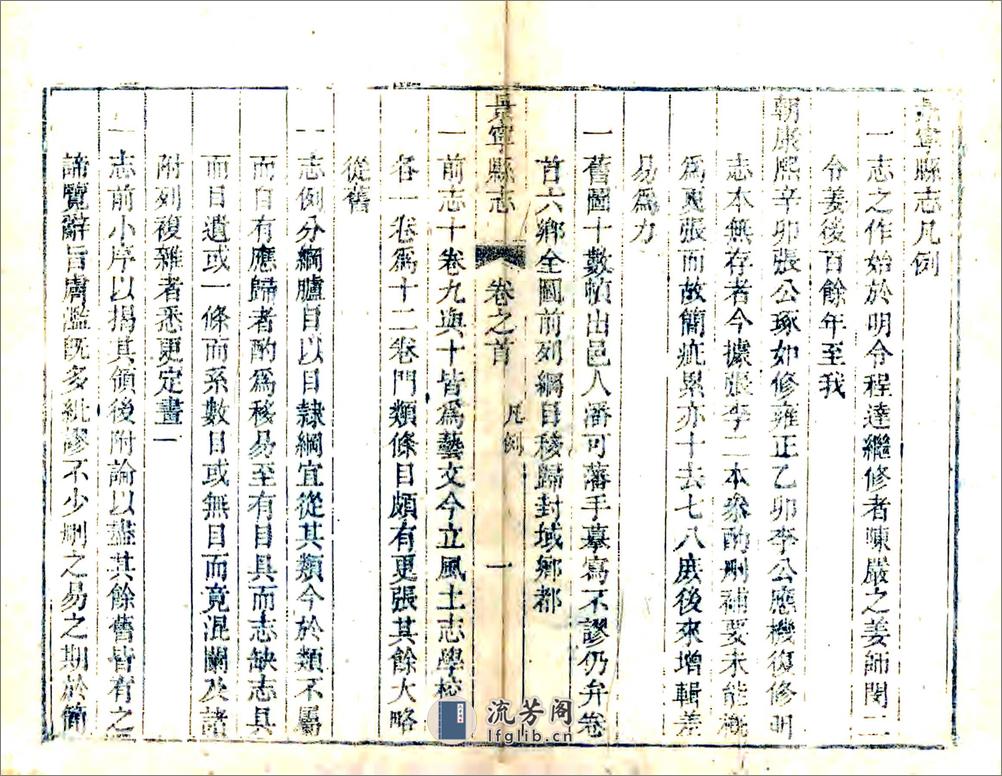 景寧縣志凡例
一志之作始於明令程達繼修者陳嚴之姜師閔二
令姜後百餘年至我
朝康熙辛卯張公琢如修雍正乙卯李公應機復修明
志本無存者今據張李二本參酌刪補要未能概
為更張而故簡疵累亦十去七八庶後來增輯差
易為力
一舊圖十數幀出邑人潘可藩手摹寫不謬仍弁卷
首六鄉全圖前列綱目移歸封域鄉都
景寧縣志
卷之首
凡例
一
一前志十卷九與十皆為藝文今立風土志學校
各一卷為十二卷門類條目頗有更張其餘大略
從舊
一志例分綱臚目以目隸綱宜從其類今於類不屬
而自有應歸者酌為移易至有目具而志缺志具
而目遺或一條而系數目或無目而竟混闌及諸
附列複雜者悉更定畫一
一志前小序以揭其領後附論以盡其餘舊皆有之
諦覽辭旨膚濫既多紕謬不少刪之易之期於簡
流芳阁
lfglib.cn